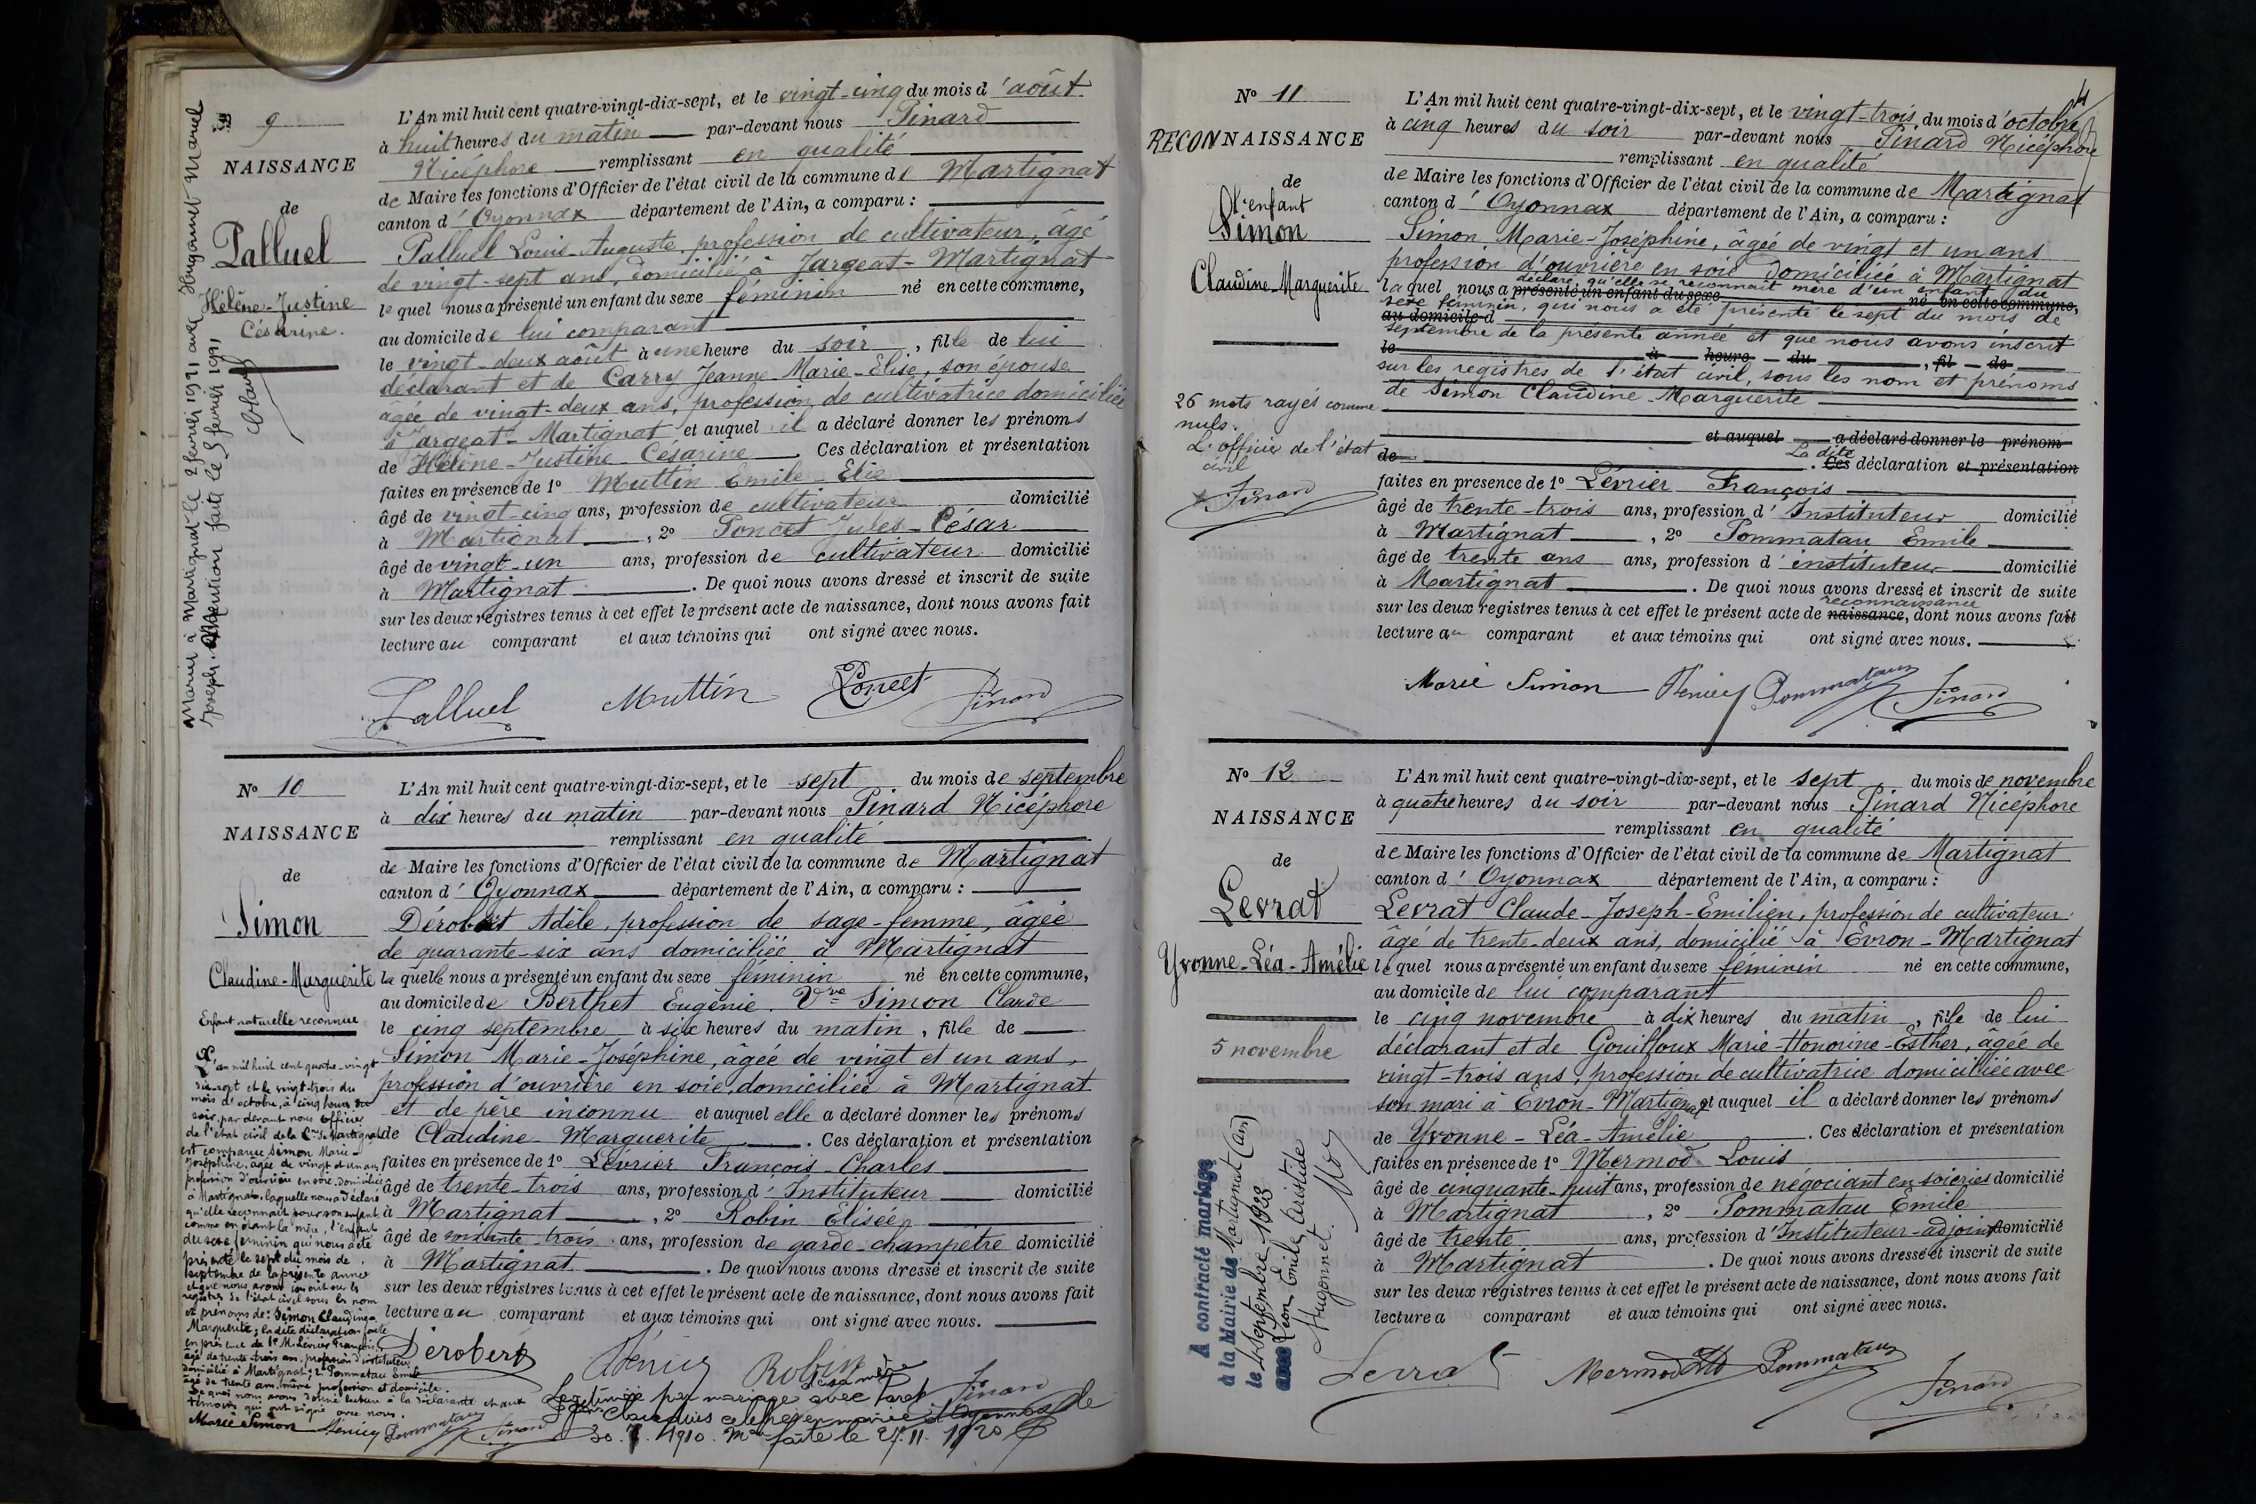 N° 9
NAISSANCE
de
Palluel
Hélène-Justine
Césarine.
Mariée à Martignat le 2 février 1921 avec Hugonnet Marcel
Joseph. Mention faite le 5 février 1921
L'An mil huit cent quatre-vingt-dix-sept, et le vingt-cinq du mois d'août
à huit heures du matin par-devant nous Pinard
Nicéphore remplissant en qualité
de Maire les fonctions d'Officier de l'état civil de la commune de Martignat
canton d'Oyonnax département de l'Ain, a comparu :
Palluel Louis-Auguste, profession de cultivateur, âgé
de vingt-sept ans, domicilié à Jargeat-Martignat
lequel nous a présenté un enfant du sexe féminin né en cette commune,
au domicile de lui comparant
le vingt-deux août à une heure du soir, fille de lui
déclarant et de Carry Jeanne-Marie-Elise, son épouse
âgée de vingt-deux ans, profession de cultivatrice domiciliée
à Jargeat-Martignat et auquel il a déclaré donner les prénoms
de Hélène-Justine-Césarine. Ces déclaration et présentation
faites en présence de 1° Muttin Emile-Elie
âgé de vingt-cinq ans, profession de cultivateur domicilié
à Martignat, 2° Poncet Jules-César
âgé de vingt-un ans, profession de cultivateur domicilié
à Martignat. De quoi nous avons dressé et inscrit de suite
sur les deux registres tenus à cet effet le présent acte de naissance, dont nous avons fait
lecture au comparant et aux témoins qui ont signé avec nous.
Palluel Muttin Poncet Pinard
N° 10
NAISSANCE
de
Simon
Claudine-Marguerite
Enfant naturelle reconnue
L'an mil huit cent quatre-vingt
dix-sept et le vingt-trois du
mois d'octobre, à cinq heures du
soir, par devant nous Officier
de l'état civil de la Cne de Martignat
est comparue Simon Marie-
Joséphine, âgée de vingt et un ans,
profession d'ouvrière en soie, domiciliée
à Martignat, laquelle nous a déclaré
qu'elle reconnaît pour son enfant
comme en étant la mère, l'enfant
du sexe féminin qui nous a été
présenté le sept du mois de
septembre de la présente année
et que nous avons inscrit sur les
registres de l'état civil sous les nom
et prénoms de : Simon Claudine-
Marguerite ; la dite déclaration faite
en présence de 1° M. Lévrier François,
âgé de trente-trois ans, profession d'instituteur
domicilié à Martignat ; 2° Pommatau Emile
âgé de trente ans, même profession et domicile.
De quoi nous avons donné lecture à la déclarante et aux
témoins qui ont signé avec nous.
Marie Simon Lévrier Pommatau Pinard
L'An mil huit cent quatre-vingt-dix-sept, et le sept du mois de septembre
à dix heures du matin par-devant nous Pinard Nicéphore
remplissant en qualité
de Maire les fonctions d'Officier de l'état civil de la commune de Martignat
canton d'Oyonnax département de l'Ain, a comparu :
Dérobert Adèle, profession de sage-femme, âgée
de quarante-six ans domiciliée à Martignat
laquelle nous a présenté un enfant du sexe féminin né en cette commune,
au domicile de Berthet Eugénie. Vve Simon Claude
le cinq septembre à six heures du matin, fille de
Simon Marie-Joséphine, âgée de vingt et un ans,
profession d'ouvrière en soie, domiciliée à Martignat
et de père inconnu et auquel elle a déclaré donner les prénoms
de Claudine-Marguerite. Ces déclaration et présentation
faites en présence de 1° Lévrier François-Charles
âgé de trente-trois ans, profession d'Instituteur domicilié
à Martignat, 2° Robin Elisée
âgé de soixante-trois ans, profession de garde-champêtre domicilié
à Martignat. De quoi nous avons dressé et inscrit de suite
sur les deux registres tenus à cet effet le présent acte de naissance, dont nous avons fait
lecture au comparant et aux témoins qui ont signé avec nous.
Dérobert Lévrier Robin Pinard
Légitimée par mariage de sa mère avec
Claudius célébré en mairie d'Oyonnax le
1910. Mon faite le 27.11.1920
N° 11
RECONNAISSANCE
de
l'enfant
Simon
Claudine-Marguerite
26 mots rayés comme
nuls.
L'officier de l'état
civil
Pinard
L'An mil huit cent quatre-vingt-dix-sept, et le vingt-trois du mois d'octobre
à cinq heures du soir par-devant nous Pinard Nicéphore
remplissant en qualité
de Maire les fonctions d'Officier de l'état civil de la commune de Martignat
canton d'Oyonnax département de l'Ain, a comparu :
Simon Marie-Joséphine, âgée de vingt et un ans
profession d'ouvrière en soie domiciliée à Martignat
déclaré qu'elle se reconnaît mère d'un enfant du
laquel nous a présenté un enfant du sexe né en cette commune,
sexe féminin, qui nous a été présenté le sept du mois de
au domicile d
septembre de la présente année et que nous avons inscrit
le à heure du , fil de
sur les registres de l'état civil, sous les nom et prénoms
de Simon Claudine-Marguerite
et auquel a déclaré donner le prénom
de . La dite Ces déclaration et présentation
faites en présence de 1° Lévrier François
âgé de trente-trois ans, profession d'Instituteur domicilié
à Martignat, 2° Pommatau Emile
âgé de trente ans ans, profession d'instituteur domicilié
à Martignat. De quoi nous avons dressé et inscrit de suite
reconnaissance
sur les deux registres tenus à cet effet le présent acte de naissance, dont nous avons fait
lecture au comparant et aux témoins qui ont signé avec nous.
Marie Simon Lévrier Pommatau Pinard
N° 12
NAISSANCE
de
Levrat
Yvonne-Léa-Amélie
5 novembre
A contracté mariage
à la Mairie de Martignat (Ain)
le 4 septembre 1923
avec Léon Emile Aristide
Hugonnet.
L'An mil huit cent quatre-vingt-dix-sept, et le sept du mois de novembre
à quatre heures du soir par-devant nous Pinard Nicéphore
remplissant en qualité
de Maire les fonctions d'Officier de l'état civil de la commune de Martignat
canton d'Oyonnax département de l'Ain, a comparu :
Levrat Claude-Joseph-Emilien, profession de cultivateur
âgé de trente-deux ans, domicilié à Evron-Martignat
lequel nous a présenté un enfant du sexe féminin né en cette commune,
au domicile de lui comparant
le cinq novembre à dix heures du matin, fille de lui
déclarant et de Gouilloux Marie-Honorine-Esther, âgée de
vingt-trois ans, profession de cultivatrice domiciliée avec
son mari à Evron-Martignat et auquel il a déclaré donner les prénoms
de Yvonne-Léa-Amélie. Ces déclaration et présentation
faites en présence de 1° Mermod Louis
âgé de cinquante-huit ans, profession de négociant en soieries domicilié
à Martignat, 2° Pommatau Emile
âgé de trente ans, profession d'Instituteur-adjoint domicilié
à Martignat. De quoi nous avons dressé et inscrit de suite
sur les deux registres tenus à cet effet le présent acte de naissance, dont nous avons fait
lecture a comparant et aux témoins qui ont signé avec nous.
Levrat Mermod Pommatau Pinard